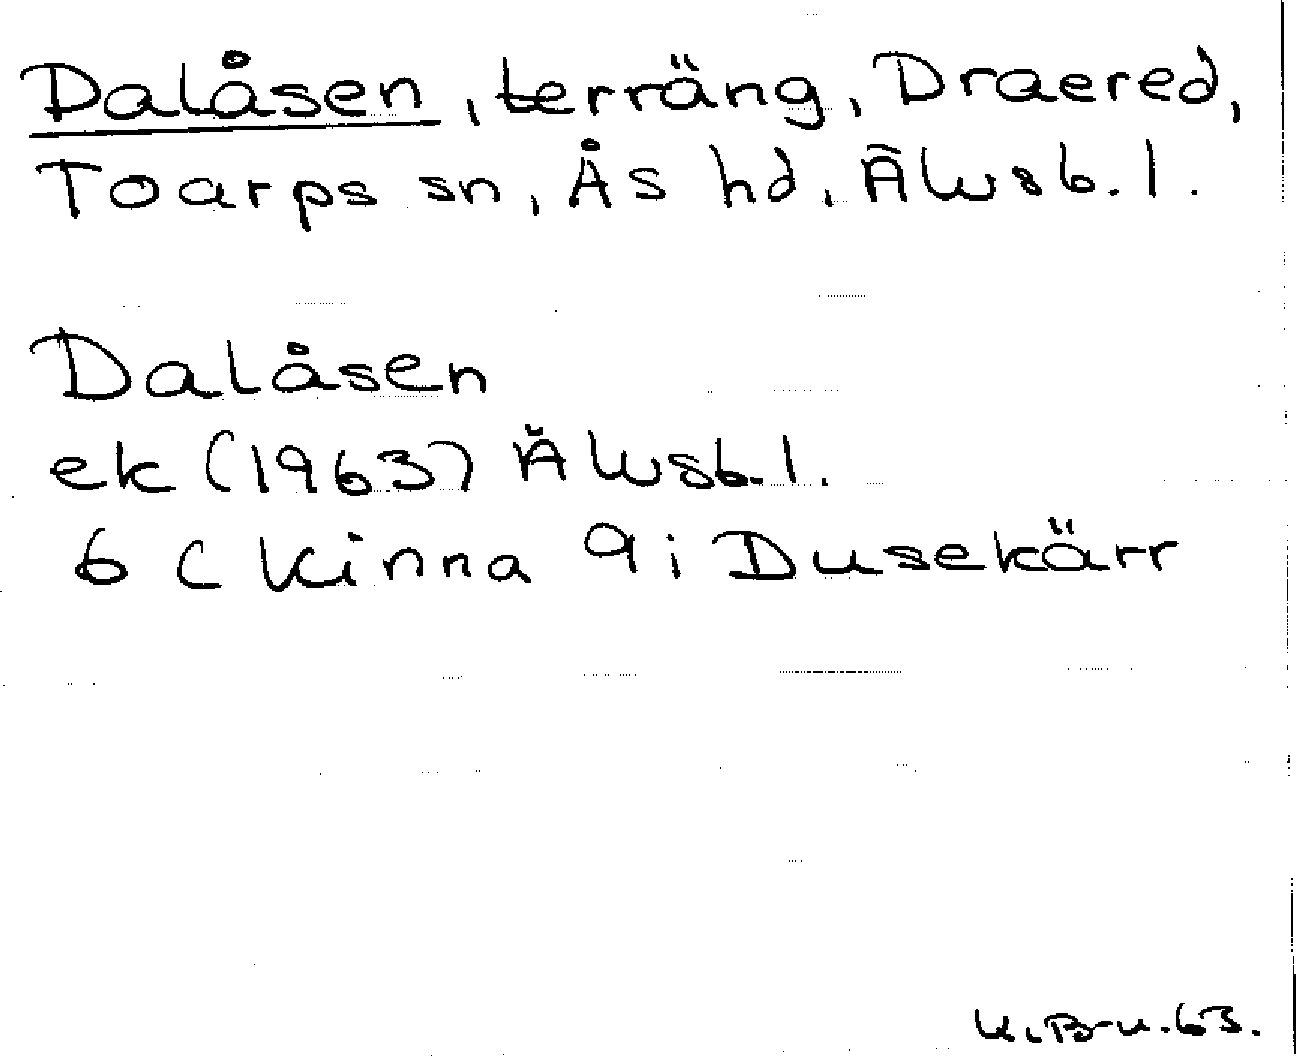 Dalåsen, terräng, Draered,
Toarps sn, Ås hd, Älvsb. l.
Dalåsen
ek (1963) Älvsb. l.
6 C Kinna 9 i Dusekärr
K.B-n.63.